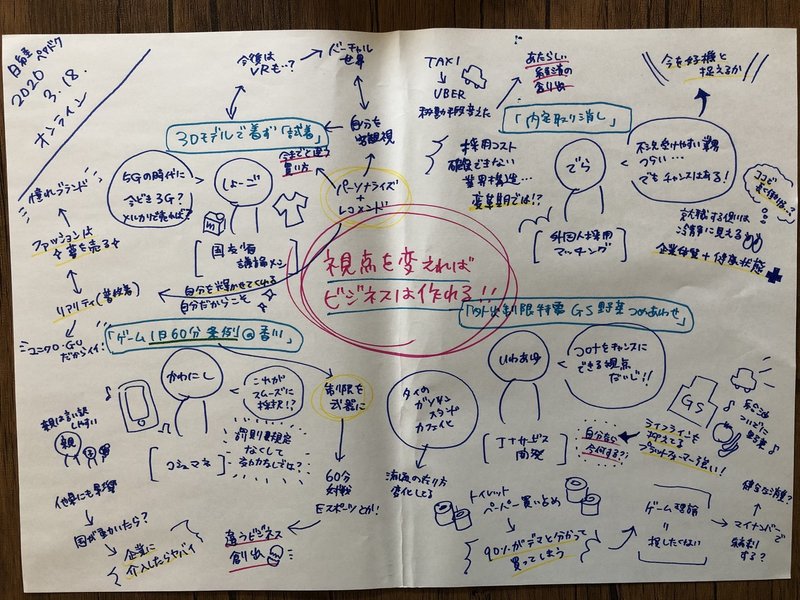 2020
3.18.
オンライン
今後は
VRも…?
バーチャル
世界
自分を
客観視
3Dモデルで着ず「試着」
今までと違う
買い方
5Gの時代に
今どき3G?
メルカリ売れば?
しょーご
パーソナライズ
+
レコメンド
憧れブランド
ファッションは
夢を売る
リアリティ(普段着)
ユニクロ・GU
だからイイ!
自分を輝かせてくれる
自分だからこそ
TAXI
UBER
移動手段変えた
あたらしい
経済の
創り出
今を好機と
捉えるか
「内定取り消し」
採用コスト
確保できない
業界構造…
変革期では!?
でら
不況受けやすい業界
つらい…
でもチャンスはある!
就職する側は
冷静に見える
企業体質+健康状態
外国人採用
マッチング
視点を変えれば
ビジネスは作れる!!
「ゲーム1日60分条例@香川」
かわにし
これが
スムーズに
採択!?
罰則規定
なくして
効力あるしでは?
コミュマネ
親は言い訳
しやすい
親
他県にも影響
国が動いたら?
企業に
介入したらヤバイ
制限を
武器に
60分
対戦
Eスポーツとか!
違うビジネス
創り出
「外出制限特需 GS野菜つめあわせ」
タイの
ガソリン
スタンド
カフェ化
流通の在り方
変化してる
いわあゆ
コロナをチャンスに
できる視点
ないじ!!
ITサービス
開発
自分なら
今何する?
GS
ガソリン
ついでに
野菜
ライフラインを
抑えてる
プラットフォーマー強い!
トイレット
ペーパー買い占め
90%がデマと分かって
買ってしまう
ゲーム理論
=
損したくない
健全な消費?
マイナンバーで
統制
する?